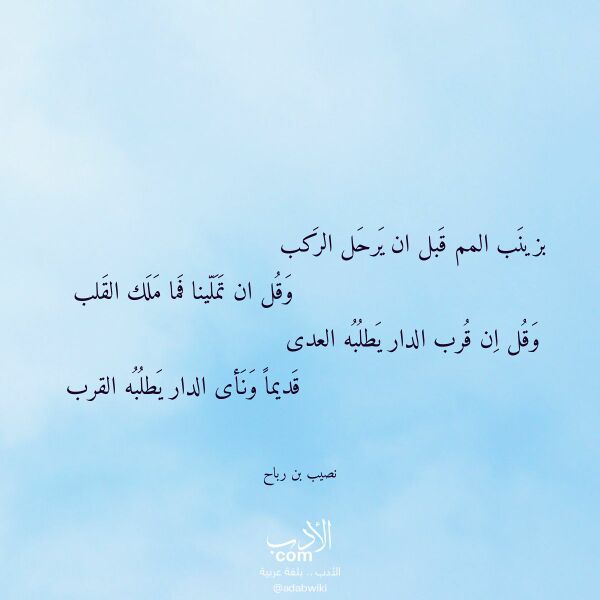 بزينَب المم قَبل ان يَرحَل الرَكب
وَقُل ان تَمَلّينا فَما مَلَك القَلب
وَقُل اِن قُرب الدار يَطلُبُه العدى
قَديماً وَنَأى الدار يَطلُبُه القرب
نصيب بن رباح
الأدب
.com
الأدب .. بلغة عربية
@adabwiki